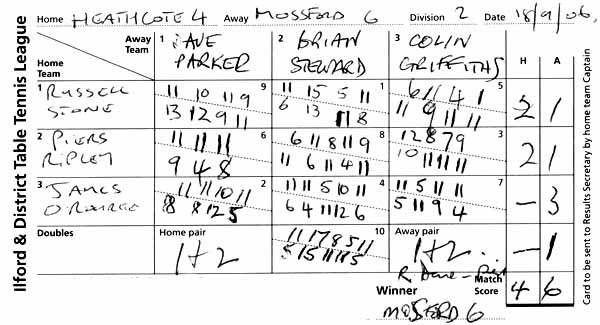 Ilford & District Table Tennis League
Home HEATHCOTE 4 Away MOSSFORD 6 Division 2 Date 18/9/06,
Away Team
Home Team
1 DAVE PARKER
2 BRIAN STEWARD
3 COLIN GRIFFITHS
H A
1 RUSSELL STONE
11 10 11 9 9
13 12 9 11
11 15 5 11 1
6 13 11 8
6 11 4 1 5
11 9 11 11
2 1
2 PIERS RIPLEY
11 11 11 6
9 4 8
6 11 8 11 9 8
11 6 11 4 11
12 8 7 9 3
10 11 11 11
2 1
3 JAMES O'ROURKE
11 11 10 11 2
8 8 12 5
11 11 5 10 11 4
6 4 11 12 6
11 5 11 11 7
5 11 9 4
- 3
Doubles
Home pair
1+2
10
11 17 8 5 11
5 15 11 11 5
Away pair
1+2
- 1
Winner
MOSSFORD 6
Match Score
4 6
Card to be sent to Results Secretary by home team Captain